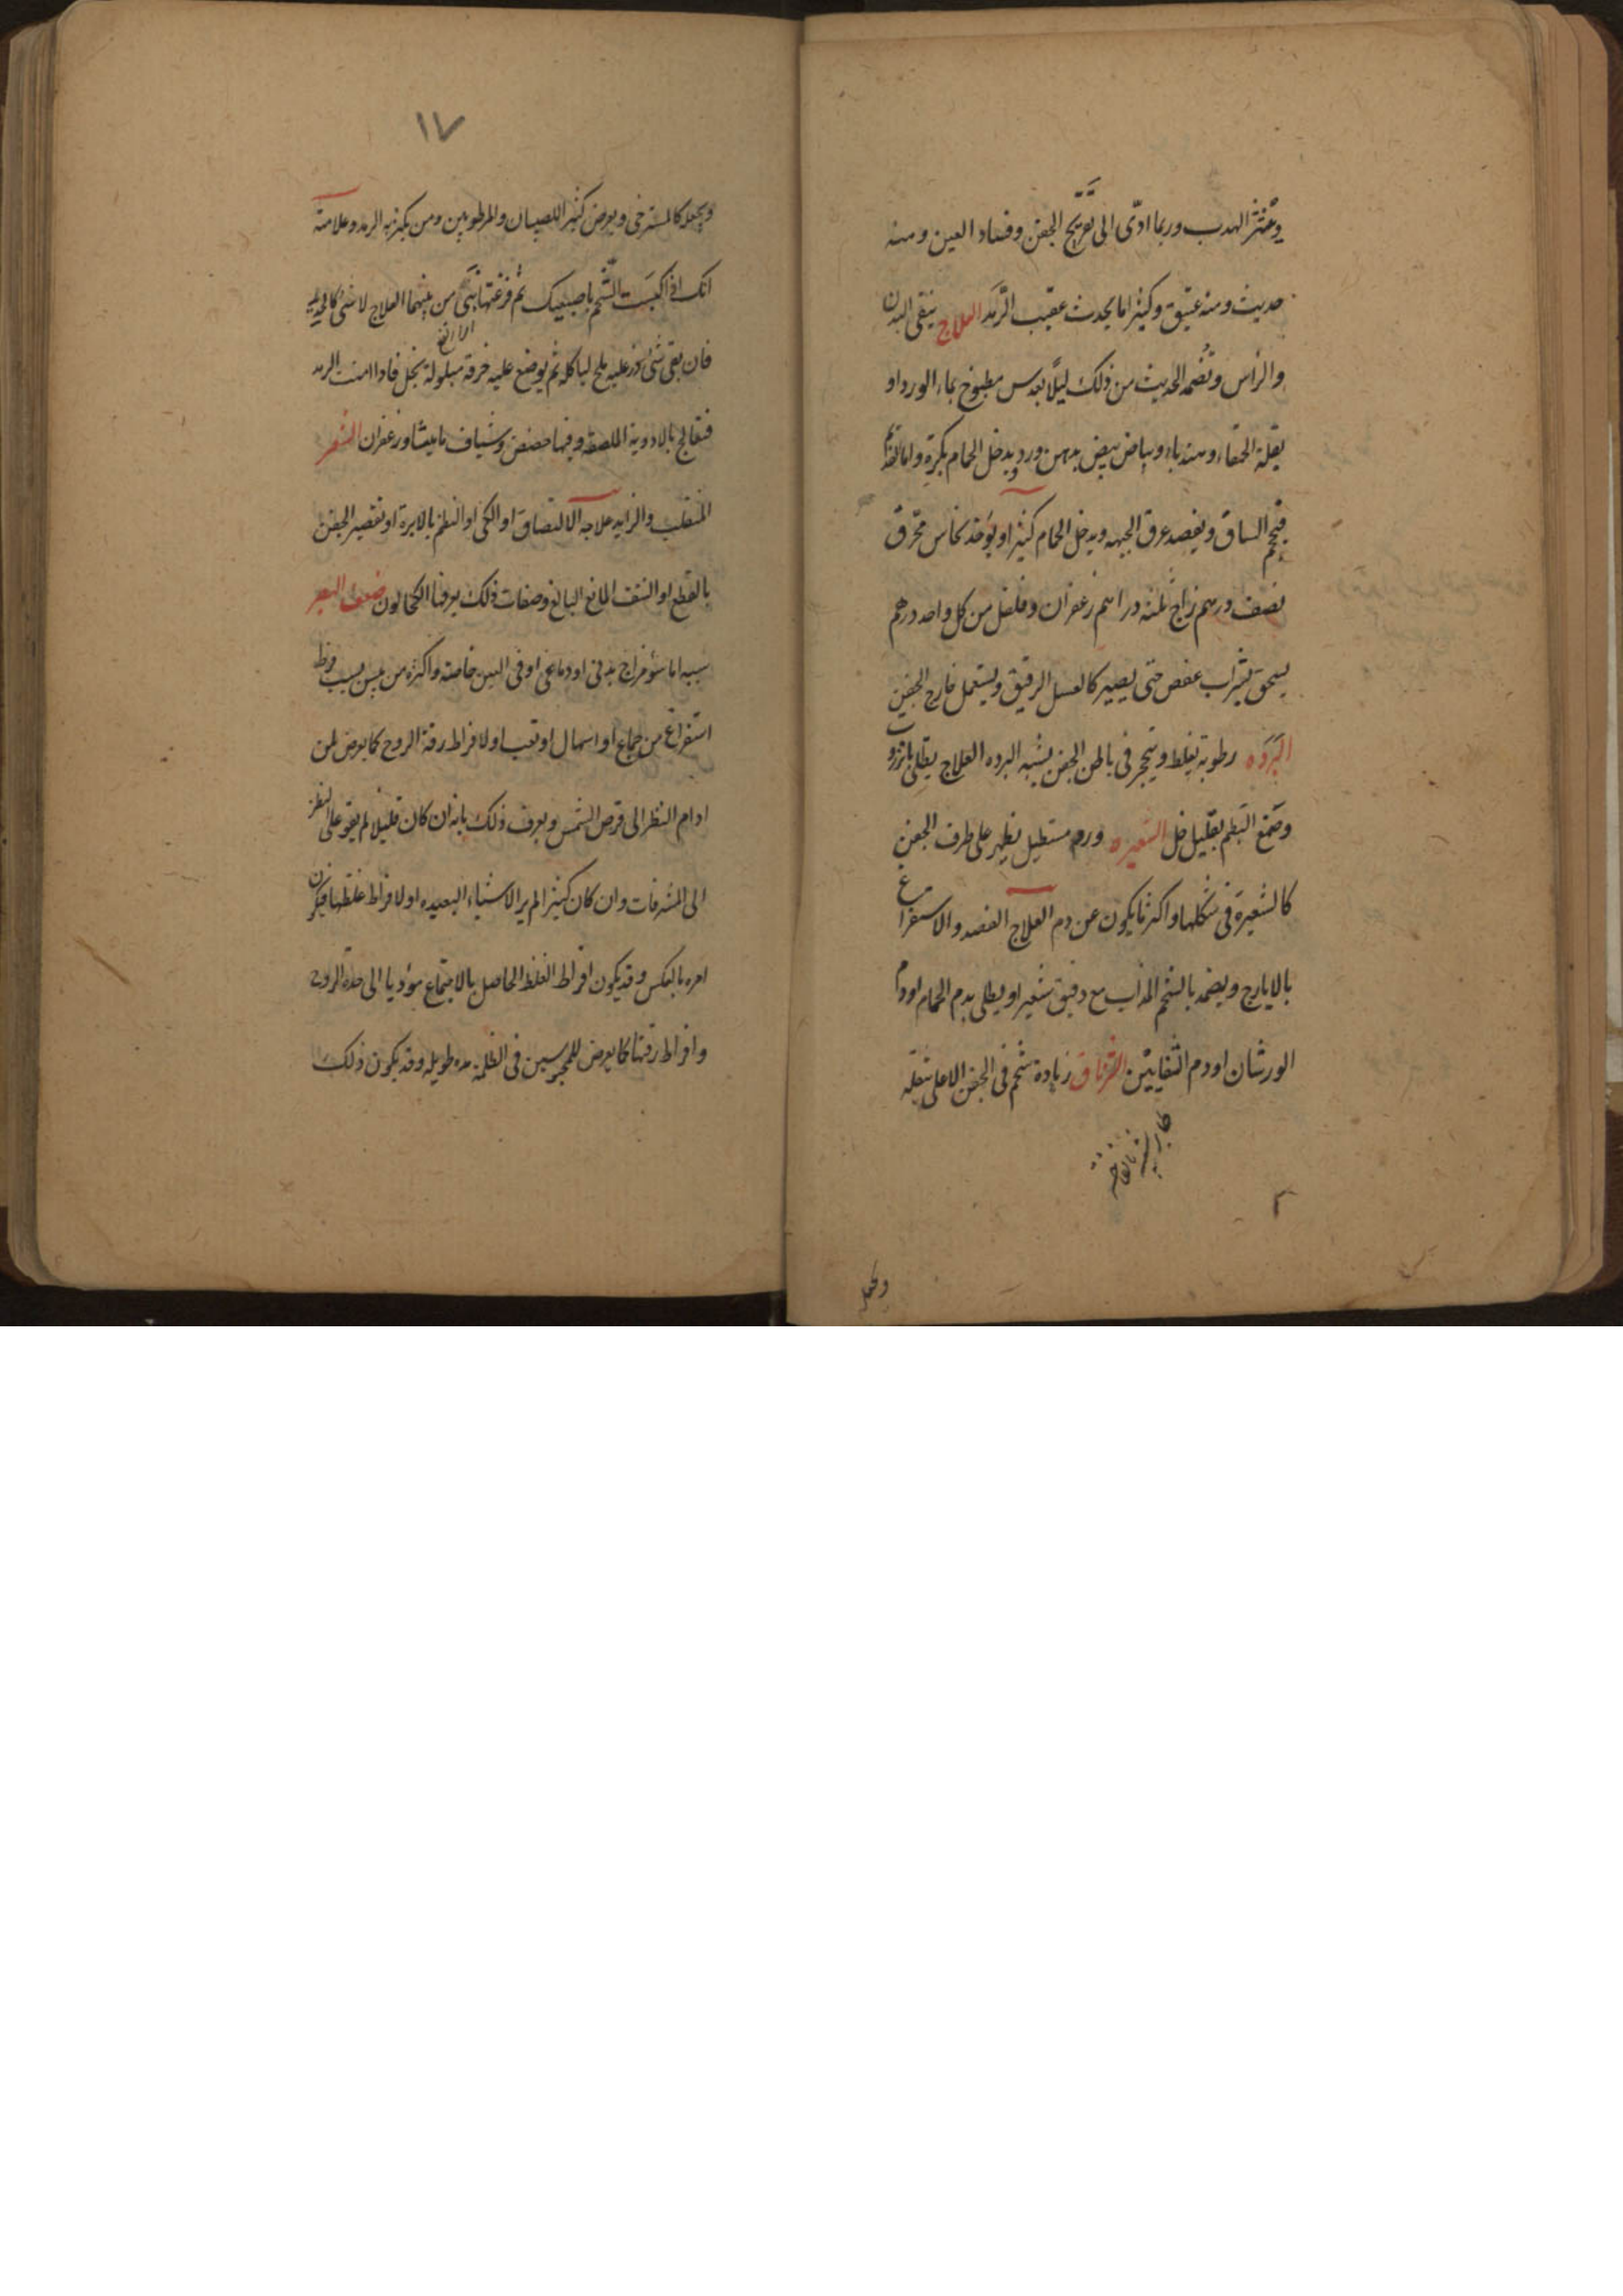 وينثر الهدب وربما ادّى الى تقرّح الجفن وفساد العين ومنه
حديث ومنه عتيق وكثيرا ما يحدث عقيب الرَّمَد العلاج ينقى البدن
والراس وتُضمد الحديث من ذلك ليلًا بعدس مطبوخ بماء الورد او
بقلة الحمقاء وهندباء وبياض بيض بدهن ورد ويدخل الحمام بكرة واما القديم
فيحجم الساق ويفصد عرق الجبهه ويدخل الحمام كثيرا ويؤخذ نحاس محرّق
نصف درهم زاج ثلثه دراهم زعفران وفلفل من كل واحد درهم
يسحق بشراب عفص حتى يصير كالعسل الرقيق ويستعمل خارج الجفن
البَرَدَه رطوبة تغلظ وتتحجر فى باطن الجفن يشبه البرده العلاج يطلى بارزوت
وصمغ البطم بقليل خل الشعيره ورم مستطيل يظهر على طرف الجفن
كالشعيرة فى شكلها واكثر ما يكون عن دم العلاج الفصد والاستفراغ
بالايارج ويضمد بالشحم المذاب مع دقيق شعير او يطلى بدم الحمام او دم
الورشان او دم الشفانين الشرناق زيادة شحم فى الجفن الاعلى تثقله
١٧
ويجعله كالمسترخى ويعرض كثيرا للصبيان والمرطوبين ومن يكثر به الرمد وعلامته
انك اذا كبست الشحم باصبعيك ثم فرغتها نتى من بينهما العلاج لا شئ كالحديد
فان بقى شئ ذر عليه ملح لياكله ثم يوضع عليه خرقة مبلولة بخل فاذا امنت الرمد
فتعالج بالادوية الملصقه وفيها حضض وشياف ماميثا وزعفران الشعر
المنقلب والزايد علاجه الالتصاق او الكى او النظم بالابرة او تقصير الجفن
بالقطع او النتف المانع البالغ وصفات ذلك يعرفها الكحالون ضعف البصر
سببه اما سؤ مزاج بدنى او دماغى او فى العين خاصة واكثره من يبس بسبب فرط
استفراغ من جماع او اسهال او تعب او لافراط رقة الروح كما يعرض لمن
ادام النظر الى قرص الشمس ويعرف ذلك بانه ان كان قليلا لم يقو على النظر
الى المشرقات وان كان كثيرا لم ير الاشياء البعيده او لافراط غلظها فيكون
امره بالعكس وقد يكون افراط الغلظ الحاصل بالاجتماع مؤديا الى حدة الروح
وافراط رقتها كما يعرض للمحبوسين فى الظلمة مده طويله وقد يكون ذلك